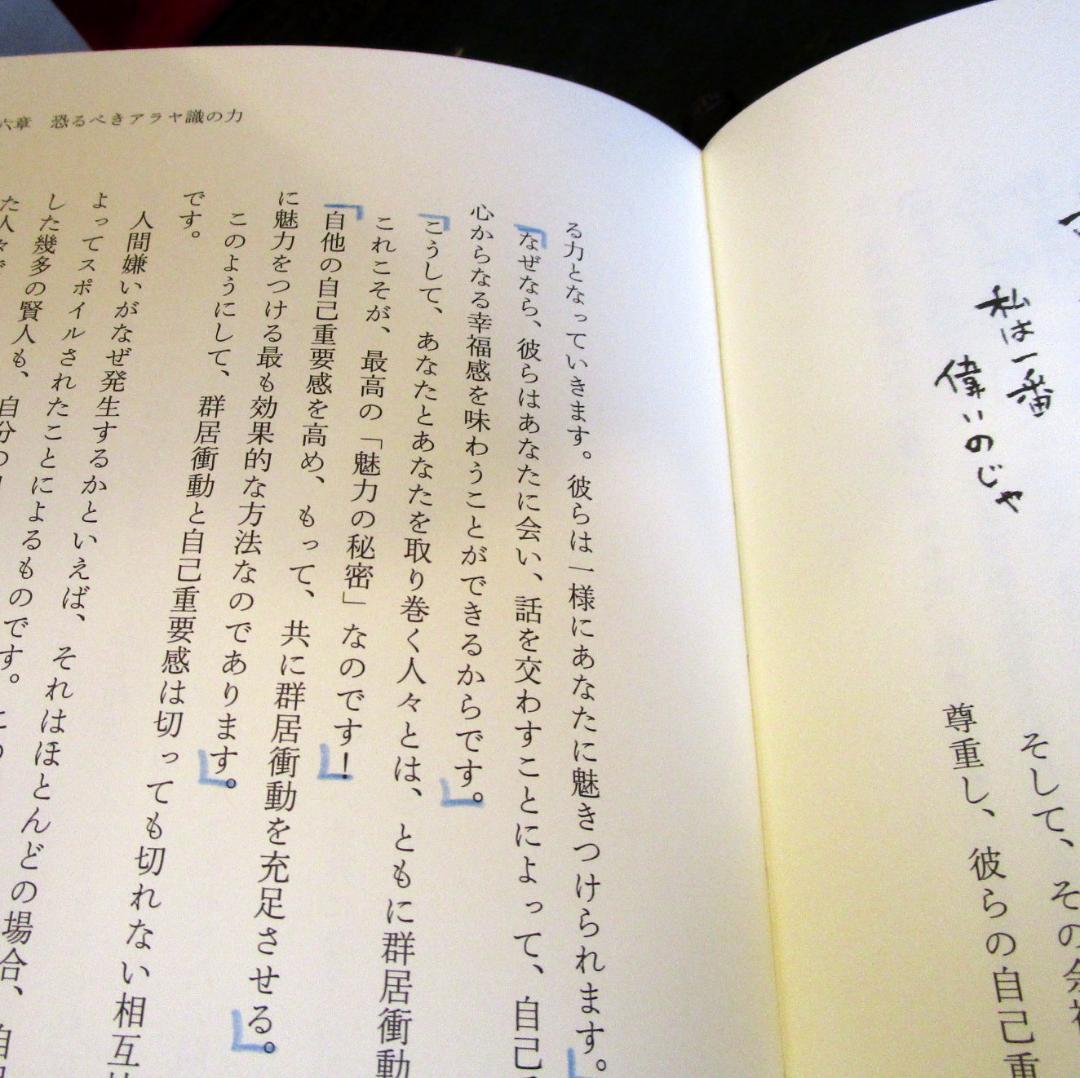 そして、その
尊重し、彼らの自己重
私は一番
偉いのじゃ
章 恐るべきアラヤ識の力
る力となっていきます。彼らは一様にあなたに魅きつけられます。
なぜなら、彼らはあなたに会い、話を交わすことによって、自己
心からなる幸福感を味わうことができるからです。
こうして、あなたとあなたを取り巻く人々とは、ともに群居衝動
これこそが、最高の「魅力の秘密」なのです!
自他の自己重要感を高め、もって、共に群居衝動を充足させる。
に魅力をつける最も効果的な方法なのであります。
このようにして、群居衝動と自己重要感は切っても切れない相互
です。
人間嫌いがなぜ発生するかといえば、それはほとんどの場合、自
よってスポイルされたことによるものです。
した幾多の賢人も、自分の
た人々で